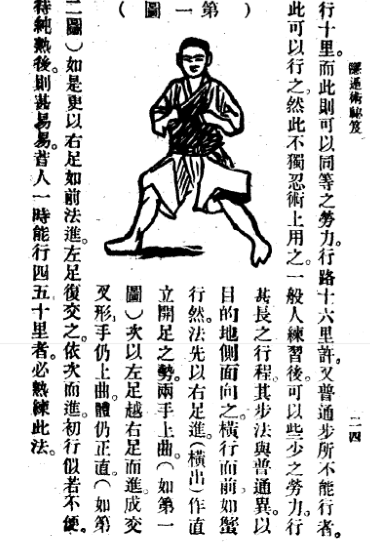 隱遁術秘笈
二四
行十里。而此則可以同等之勞力。行路十六里許。又普通步所不能行者。
此可以行之。然此不獨忍術上用之。一般人練習後。可以些少之勞力。行
(第一圖)
甚長之行程。其步法與普通異。以
目的地側面向之。橫行而前。如蟹
行然。法先以右足進(橫出)作直
立開足之勢。兩手上曲。(如第一
圖)次以左足越右足而進。成交
叉形。手仍上曲。體仍正直。(如第
二圖)如是更以右足如前法進。左足復交之。依次而進。初行似若不便。
待純熟後。則甚易易。昔人一時能行四五十里者。必熟練此法。